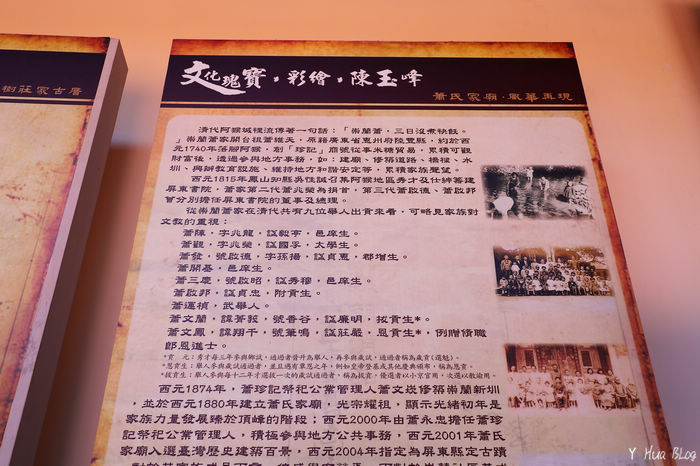 樹莊家古厝
文化瑰寶，彩繪，陳玉峰
蕭氏家廟‧風華再現
清代阿猴城裡流傳著一句話：「崇蘭蕭，三日沒煮秫飯。
」崇蘭蕭家開台祖蕭維天，原籍廣東省惠州府陸豐縣，約於西
元1740年落腳阿猴，創「珍記」商號從事米糖貿易，累積可觀
財富後，透過參與地方事務，如：建廟、修築道路、橋樑、水
圳，興辦教育設施、維持地方和諧安定等，累積家族聲望。
西元1815年鳳山知縣吳性誠召集阿猴地區秀才及仕紳籌建
屏東書院，蕭家第二代蕭兆榮為捐首，第三代蕭啟德、蕭啟邦
曾分別擔任屏東書院的董事及總理。
從崇蘭蕭家在清代共有九位舉人出貢來看，可略見家族對
文教的重視：
蕭陳，字兆龍，諡毅亭，邑庠生。
蕭觀，字兆榮，諡國孚，太學生。
蕭發，號啟德，字孫揚，諡貞惠，郡增生。
蕭開基，邑庠生。
蕭三慶，號啟昭，諡秀穆，邑庠生。
蕭啟邦，諡貞忠，附貢生。
蕭運禎，武舉人。
蕭文蘭，諱菁莪，號香谷，諡廉明，拔貢生*。
蕭文鳳，諱翔千，號筆鳴，諡莊嚴，恩貢生*，例贈脩職
郎恩進士。
*貢　元：秀才每三年參與鄉試，通過者晉升為舉人，再參與歲試，通過者稱為歲貢(選魁)。
*恩貢生：舉人參與歲試通過者，並且遇有覃恩之年，例如皇帝登基或其他慶典頒布，稱為恩貢。
*拔貢生：舉人參與每十二年才選拔一次的歲試通過者，稱為拔貢，優選者以小京官用，次選以教諭用。
西元1874年，蕭珍記祭祀公業管理人蕭文炎修築崇蘭新圳
，並於西元1880年建立蕭氏家廟，光宗耀祖，顯示光緒初年是
家族力量發展臻於頂峰的階段；西元2000年由蕭永忠擔任蕭珍
記祭祀公業管理人，積極參與地方公共事務，西元2001年蕭氏
家廟入選臺灣歷史建築百景，西元2004年指定為屏東縣定古蹟
Y Hua Blog